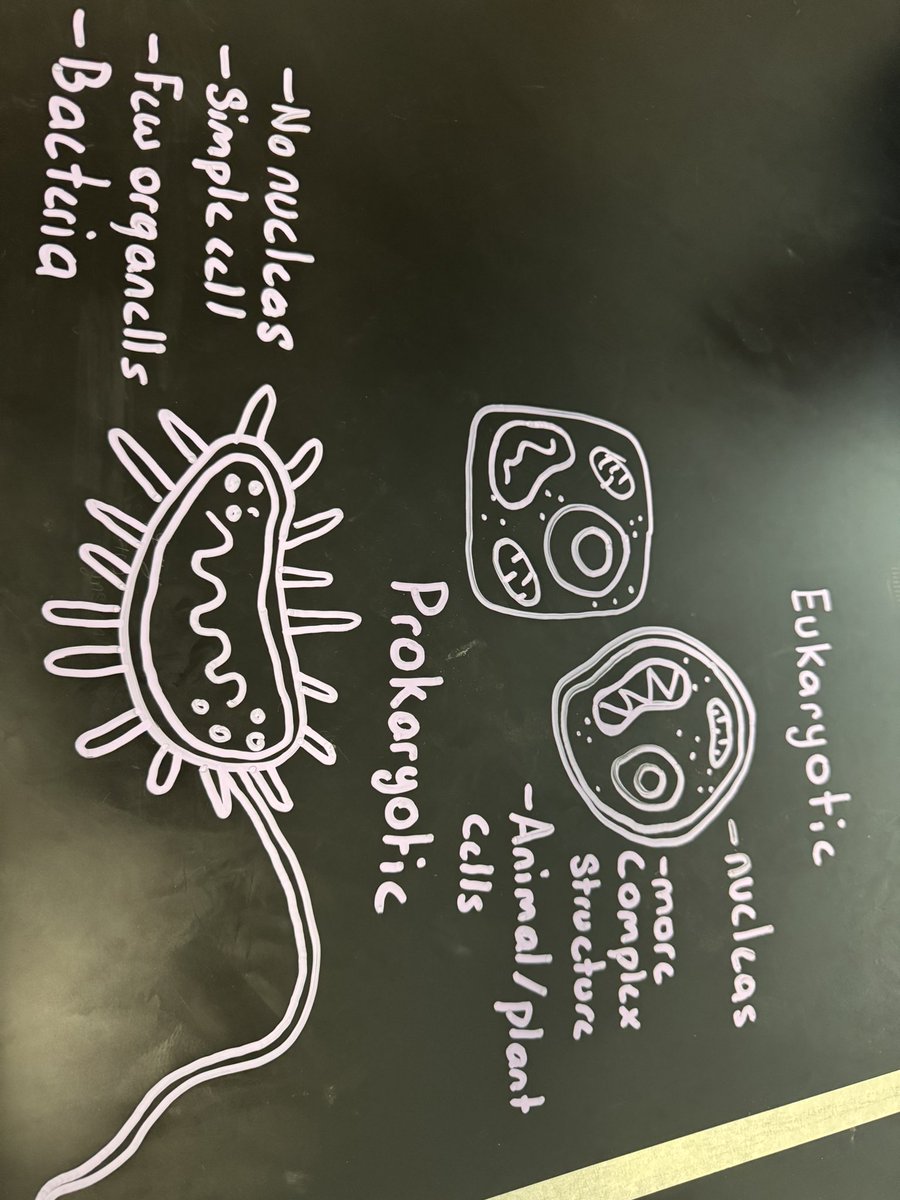 Eukaryotic
-nucleas
-more
Complex
Structure
-Animal/plant
cells
Prokaryotic
-No nucleas
-Simple cell
-Few organells
-Bacteria